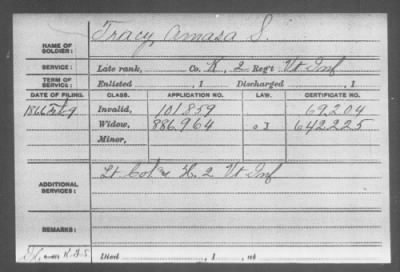 NAME OF SOLDIER: Tracy, Amasa S.
SERVICE: Late rank, Co. K, 2 Reg't Vt Inf
TERM OF SERVICE: Enlisted , 1 Discharged , 1
DATE OF FILING. CLASS. APPLICATION NO. LAW. CERTIFICATE NO.
1866 Invalid, 101.859 69,204
Widow, 886,964 03 642225
Minor,
ADDITIONAL SERVICES: Lt Col 2 Vt Inf
REMARKS:
Died , 1 , at